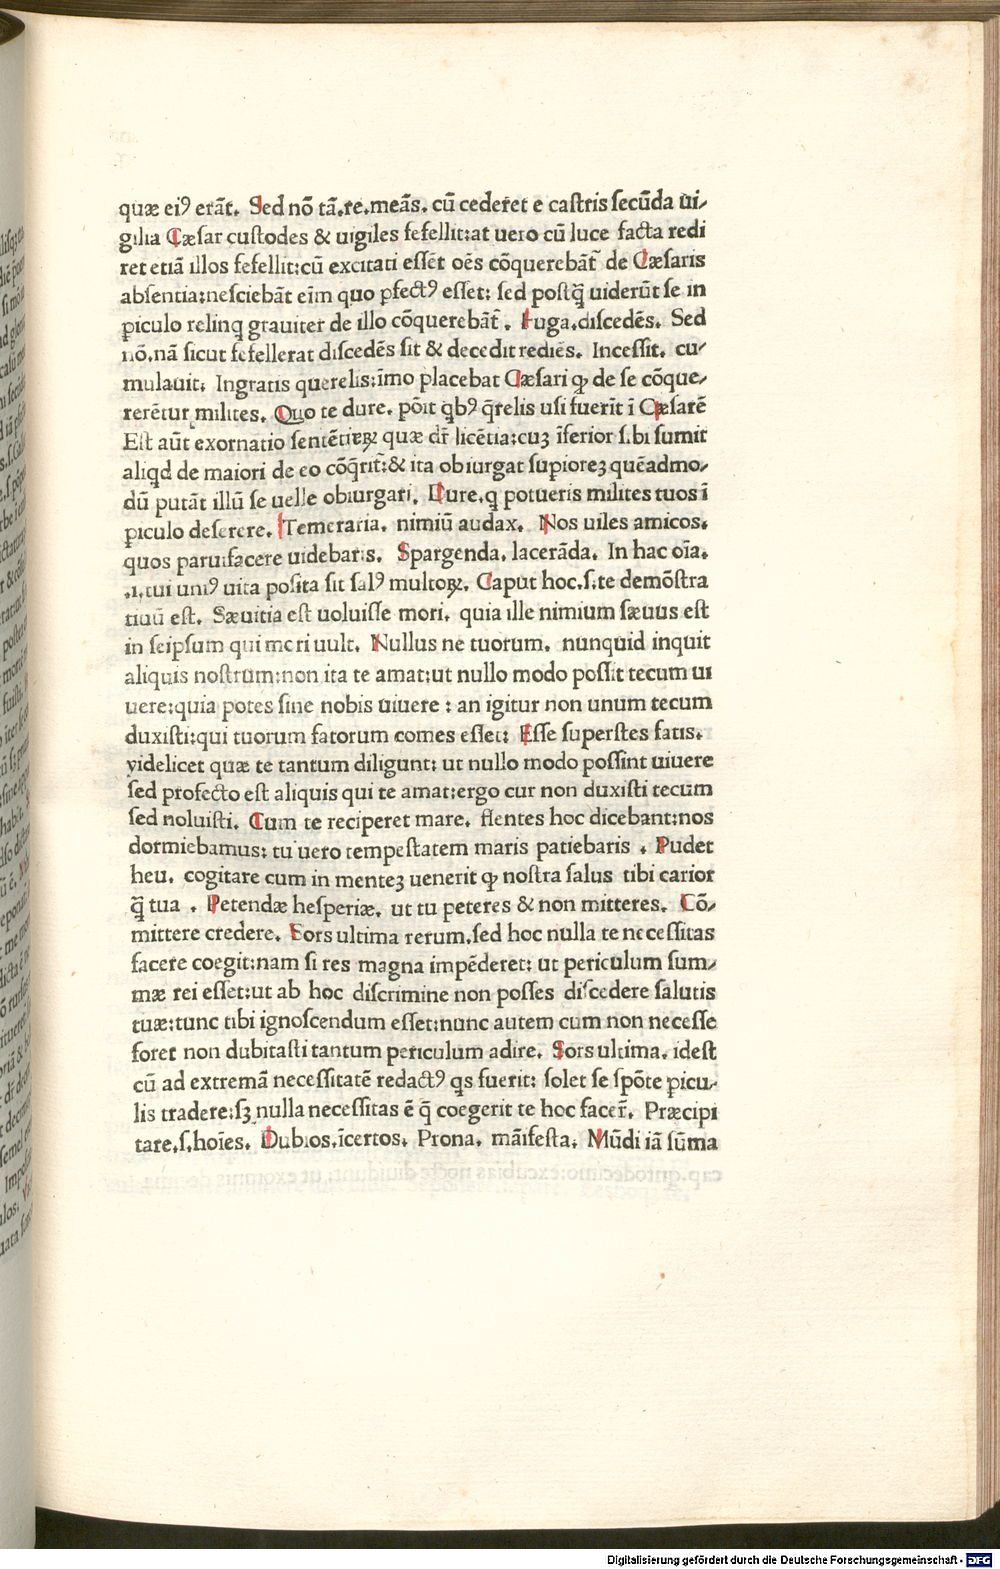 quæ eiꝰ erāt. Sed nō tā.re.meās. cū cederet e castris secūda ui/
gilia Cæsar custodes & uigiles fefellit:at uero cū luce facta redi
ret etiā illos fefellit:cū excitati essēt oēs cōquerebāt̄ de Cæsaris
absentia:nesciebāt eīm quo ꝓfectꝰ esset: sed postq̄ uiderūt se in
ꝑiculo relinq grauiter de illo cōquerebāt̄. Fuga.discedēs. Sed
nō.nā sicut fefellerat discedēs sit & decedit rediēs. Incessit. cu/
mulauit. Ingratis querelis:īmo placebat Cæsari ꝙ de se cōque/
rerētur milites. Quo te dure. pōīt qbꝰ q̄relis usi fuerīt ī Cæsarē
Est aūt exornatio sentētiaꝝ quæ dr̄ licētia:cuꝫ īferior sibi sumit
aliqd de maiori de eo cōq̄rit̄:& ita obiurgat supioreꝫ quēadmo/
dū putāt illū se uelle obiurgari. Dure.q potueris milites tuos ī
ꝑiculo deserere. Temeraria. nimiū audax. Nos uiles amicos.
quos paruifacere uidebaris. Spargenda. lacerāda. In hac oīa.
.i.cui uniꝰ uita posita sit salꝰ multoꝝ. Caput hoc.s.te demōstra
tiuū est. Sæuitia est uoluisse mori. quia ille nimium sæuus est
in seipsum qui mori uult. Nullus ne tuorum. nunquid inquit
aliquis nostrum:non ita te amat:ut nullo modo possit tecum ui
uere:quia potes sine nobis uiuere : an igitur non unum tecum
duxisti:qui tuorum fatorum comes esset: Esse superstes fatis.
videlicet quæ te tantum diligunt: ut nullo modo possint uiuere
sed profecto est aliquis qui te amat:ergo cur non duxisti tecum
sed noluisti. Cum te reciperet mare. flentes hoc dicebant:nos
dormiebamus: tu uero tempestatem maris patiebaris . Pudet
heu. cogitare cum in menteꝫ uenerit ꝙ nostra salus tibi carior
q̄ tua . Petendæ hesperiæ. ut tu peteres & non mitteres. Cō/
mittere credere. Sors ultima rerum.sed hoc nulla te necessitas
facere coegit:nam si res magna impēderet: ut periculum sum/
mæ rei esset:ut ab hoc discrimine non posses discedere salutis
tuæ:tunc tibi ignoscendum esset:nunc autem cum non necesse
foret non dubitasti tantum periculum adire. Sors ultima. idest
cū ad extremā necessitatē redactꝰ qs fuerit: solet se spōte ꝑicu/
lis tradere:sꝫ nulla necessitas ē q̄ coegerit te hoc facer̄. Præcipi
tare.s.hoīes. Dubios.īcertos. Prona. māifesta. Mūdi iā sūma
Digitalisierung gefördert durch die Deutsche Forschungsgemeinschaft - DFG